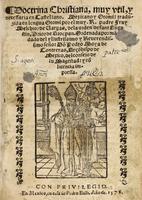 Doctrina Christiana, muy vtil, y
necessaria en Castellano, Mexicano y Otomi: tradu-
zida en lengua Otomi por el muy R. padre Fray
Melchior de Vargas, de la orden de sant Au-
gustin, Prior de
do del yllustrissimo y Reuerendis-
simo señor Don Pedro Moya de
Contreras, Arçobispo de
Mexico, del consejo de
su Magestad: y con
licencia im-
pressa.
CON PRIVILEGIO.
En Mexico, en casa de Pedro Balli. Año de 1576.